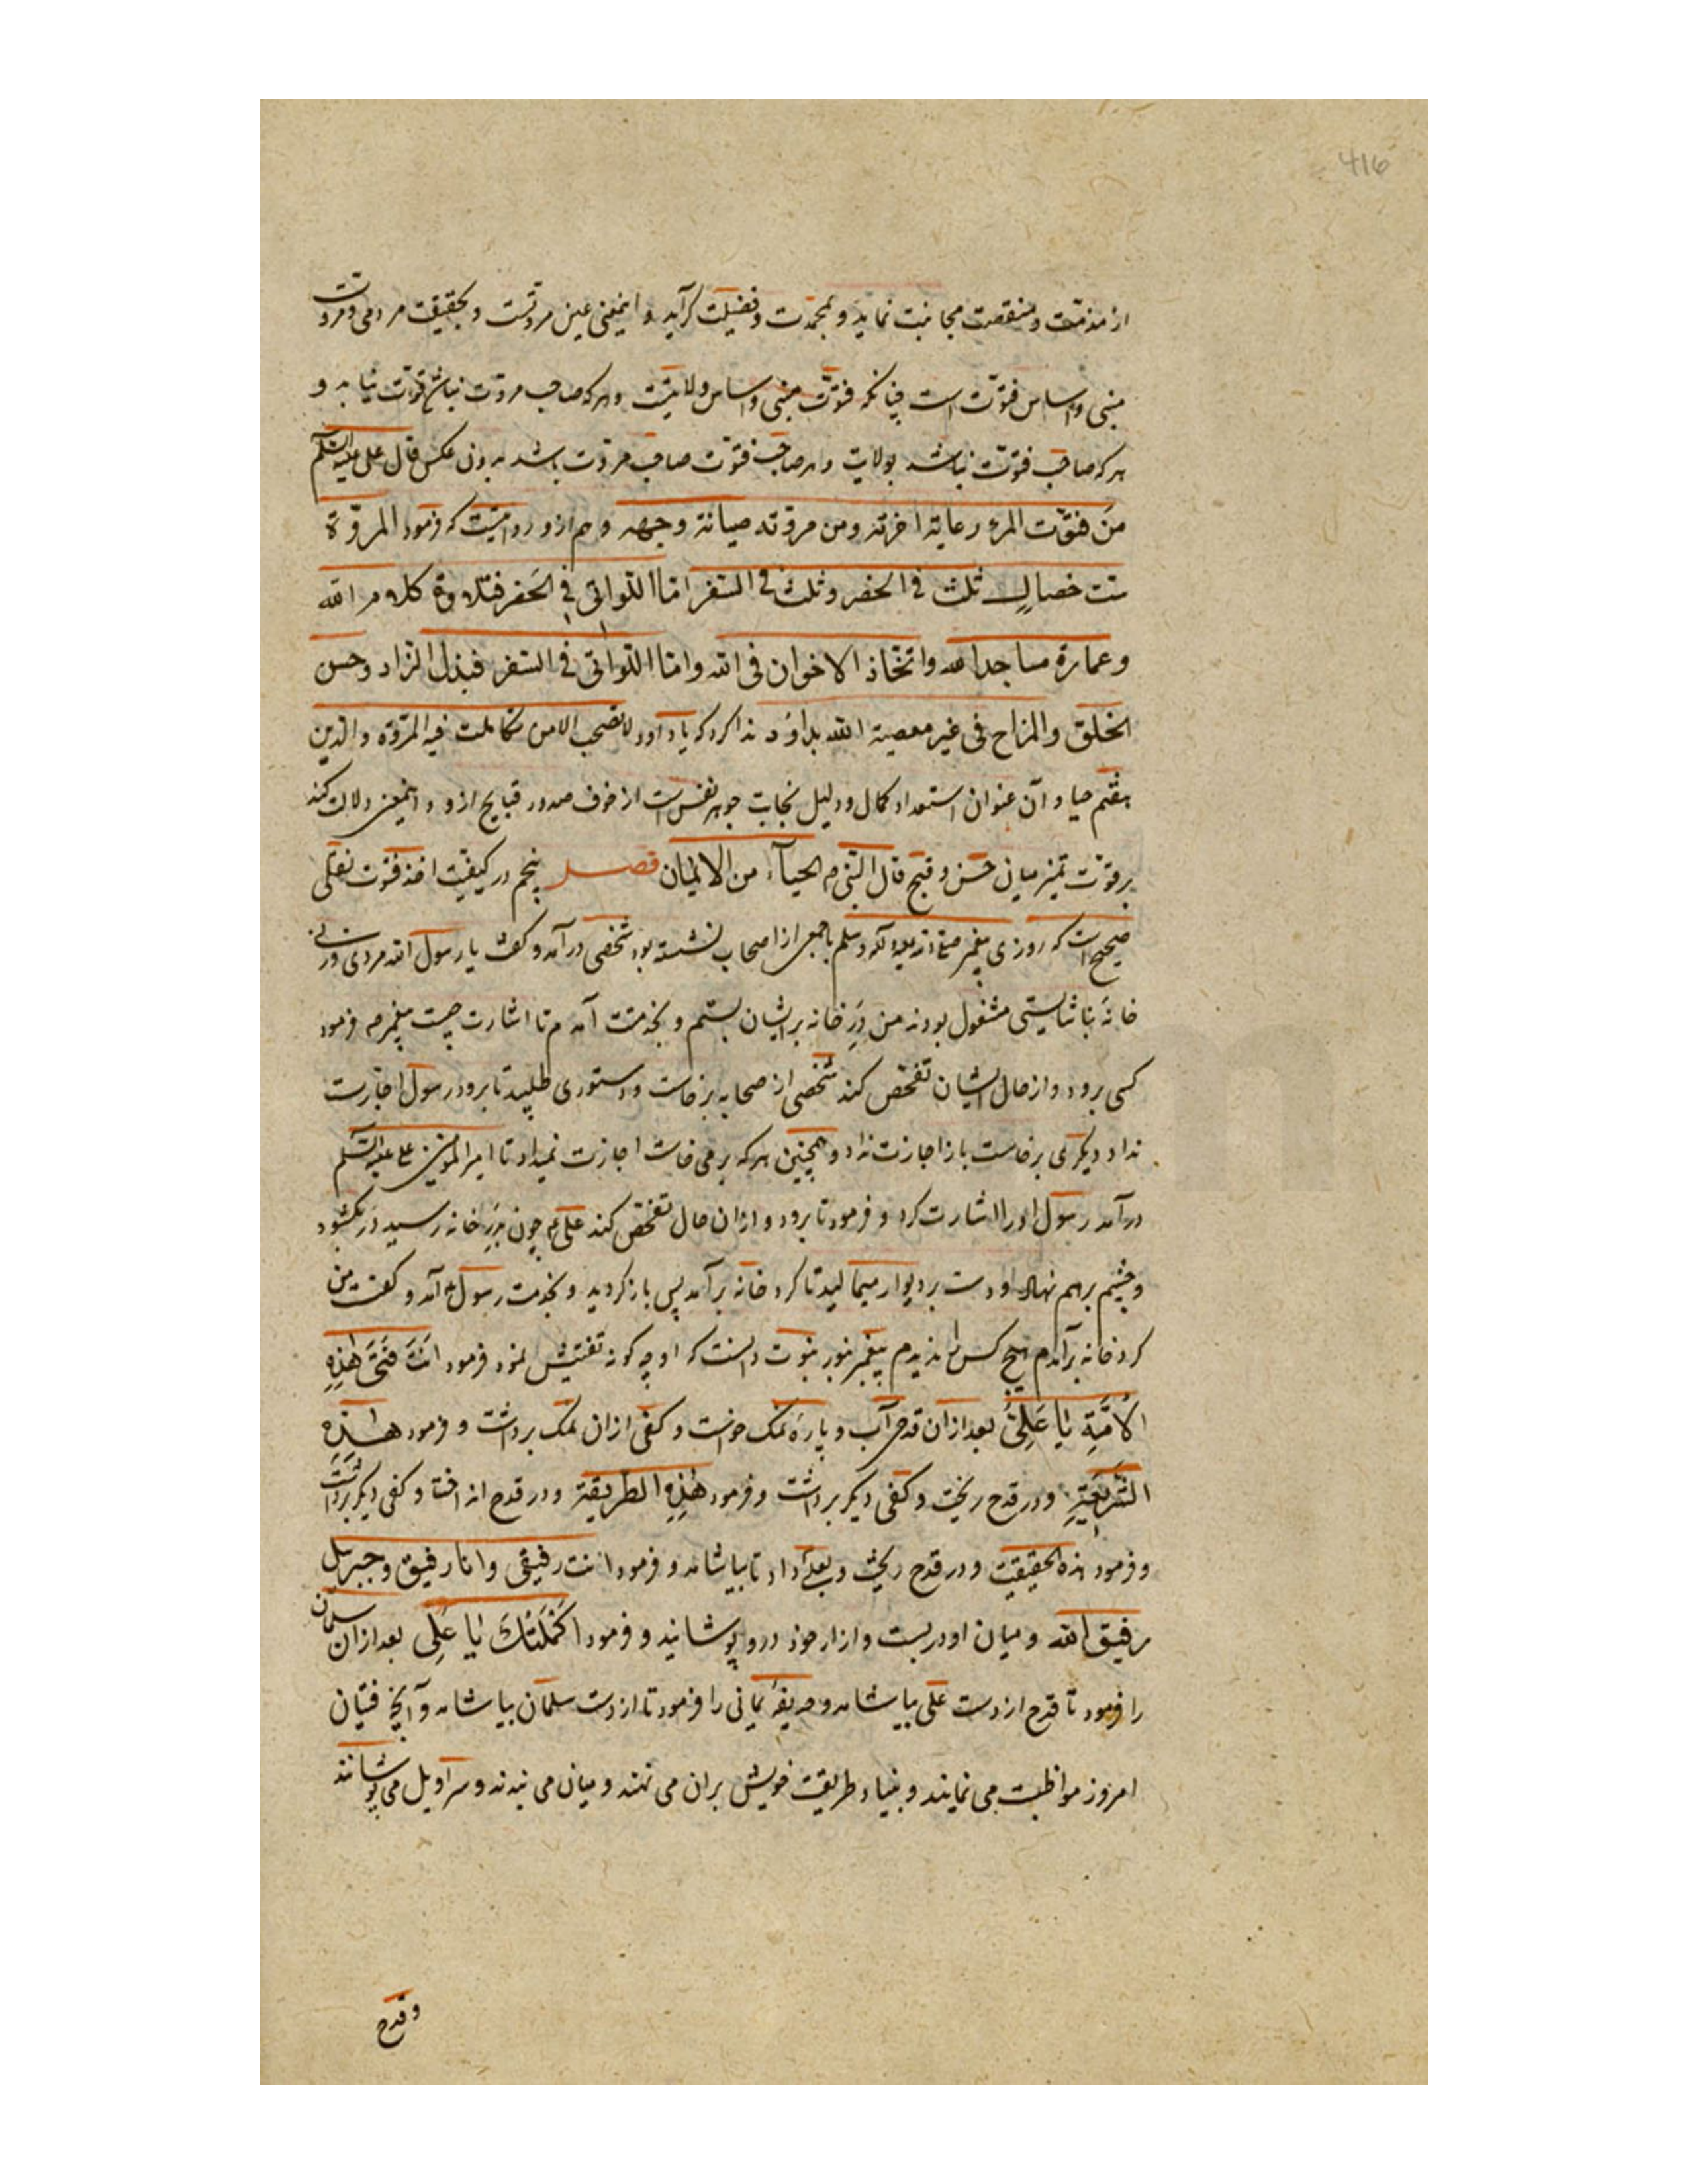 416
از مذمّت و منقصت مجانبت نماید و بمحمدت و فضیلت گراید و اینمعنی عین مروّتست و بحقیقت مردمی و مروّت
مبنی و اساس فتوّت است چنانکه فتوّت مبنی و اساس ولایتست و هرکه صاحب مروّت نباشد فتوّت نیابد و
هرکه صاحب فتوّت نباشد بولایت و هر صاحب فتوّت صاحب مروّت باشد بدون عکس قال علی علیه السّلم
من فتوّت المرء رعایة اخرته ومن مروّته صیانة وجهه و هم ازو روایتست که فرمود المروّة
ستّ خصال ثلث فی الحضر وثلث فی السّفر امّا اللّواتی فی الحَضر فتلاوة کلام الله
وعمارة مساجد الله واتّخاذ الاخوان فی الله وامّا اللّواتی فی السّفر فبذل الزّاد وحسن
الخلق والمزاح فی غیر معصیة الله بداود ندا کرد که یا داود لا تصحب الا من تکاملت فیه المروّة والدّین
هفتم حیا و آن عنوان استعداد کمال و دلیل نجابت جوهر نفس است از خوف صدور قبایح ازو و اینمعنی دلالت کند
بر قوّت تمیز میان حَسَن و قبیح قال النّبی م الحیآء من الایمان فصل پنجم در کیفیّت اخذ فتوّت نقلی
صحیح است که روزی پیغمبر صلی الله علیه وآله وسلم با جمعی از اصحاب نشسته بود شخصی درآمد و گفت یا رسول الله مردی و زنی در
خانهٔ بناشایستی مشغول بودند من دَرِ خانه بر ایشان ببستم و بخدمتت آمدم تا اشارت چیست پیغمبر م فرمود
کسی برود و از حال ایشان تفحّص کند شخصی از صحابه برخاست و دستوری طلبید تا برود رسول اجازت
نداد دیگری برخاست باز اجازت نداد و همچنین هرکه برمی خاست اجازت نمیداد تا امیر المؤمنین علی علیه السّلم
درآمد رسول او را اشارت کرد و فرمود تا برود و ازان حال تفحّص کند علی ع چون بدَرِ خانه رسید دَر بگشود
و چشم برهم نهاد و دست بر دیوار میمالید تا گرد خانه برآمد پس بازگردید و بخدمت رسول ع آمد و گفت من
گرد خانه برآمدم هیچ کس را ندیدم پیغمبر بنور نبوّت دانست که او چه گونه تفتیش نمود فرمود اَنتَ فَتَی هٰذِهِ
الاُمَّةِ یٰا عَلِیُّ بعد ازان قدحی آب و پارهٔ نمک خواست و کفی ازان نمک برداشت و فرمود هٰذِهِ
الشَّرِیعَةِ و در قدح ریخت و کفی دیگر برداشت و فرمود هٰذِهِ الطریقة و در قدح انداخت و کفی دیگر برداشت
و فرمود هذه الحقیقة و در قدح ریخت و بعلی داد تا بیاشامد و فرمود انت رفیقی وانا رفیق وجبریل
رفیق الله و میان او در بست و ازار خود درو پوشانید و فرمود اَکْمَلتُکَ یٰا عَلِی بعد ازان سلمان
را فرمود تا قدح از دست علی بیاشامد و حذیفهٔ یمانی را فرمود تا از دست سلمان بیاشامد و آنچه فتیان
امروز مواظبت می نمایند و بنیاد طریقت خویش بران می نهند و میان می بندند و سراویل می پوشانند
و قدح